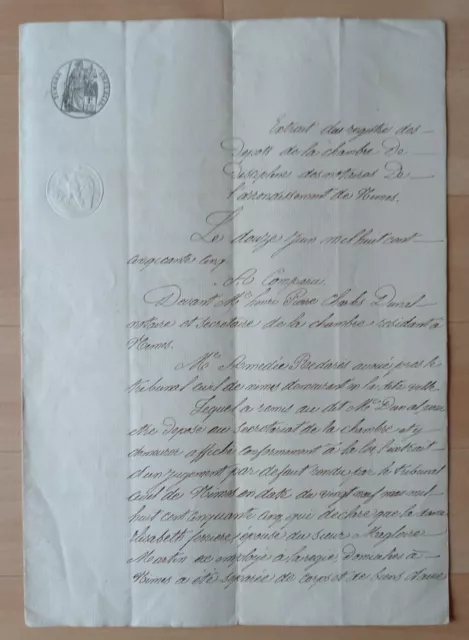 Extrait des registre des
Depots de la chambre de
Discipline des notaires De
l'arrondissement de Nimes.
Le douze juin mil huit cent
cinquante cinq
A Comparu
Devant Me henri Pierre Charles Duval
notaire et secretaire de la chambre residant à
Nimes.
Me Amedée Bedares avoué près le
Tribunal civil de nimes demeurant en la dite ville
Lequel a remis au dit Me Duval pour
être deposé au secretariat de la chambre et y
demeurer affiché conformement à la loi l'extrait
d'un jugement par defaut rendu par le tribunal
civil de Nimes en date du vingt neuf mai mil
huit cent cinquante cinq qui déclare que la dame
elisabeth épouse du sieur Magloire
ex employé à domicilié à
Nimes a été séparée de corps et de biens d'avec